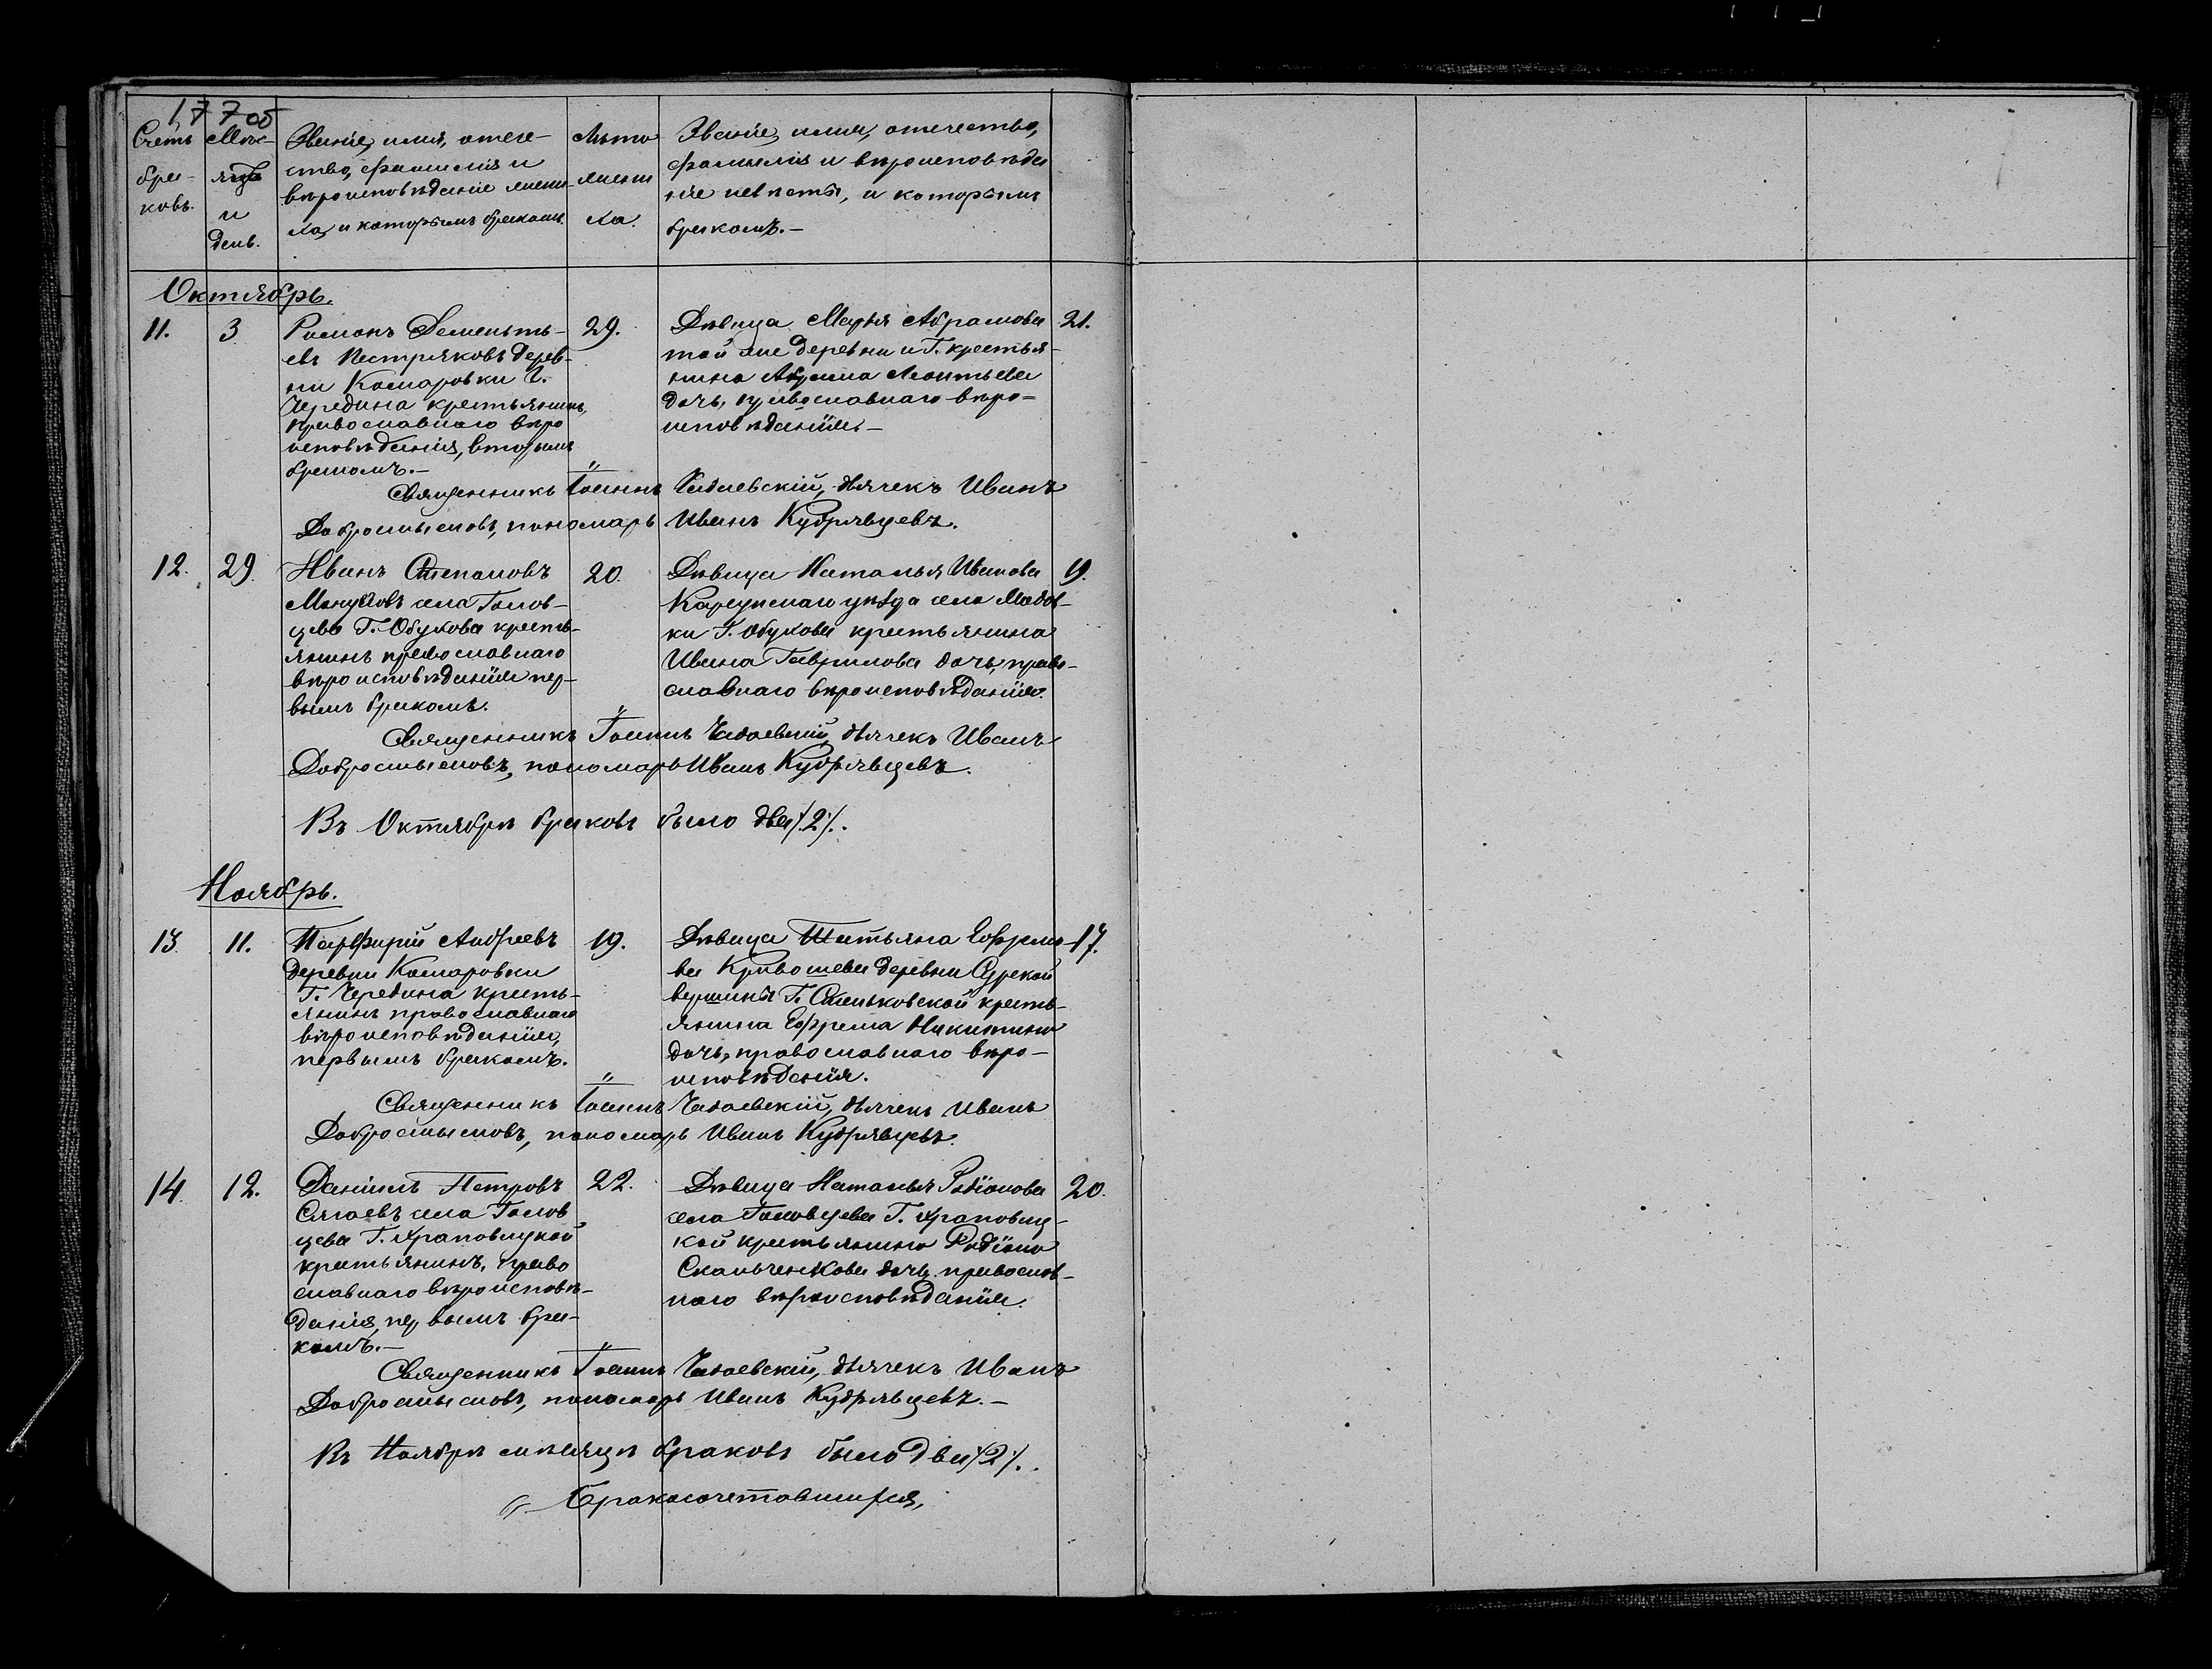 177 об
Счетъ бра-ковъ.
Мѣс-яцъ и день.
Званіе, имя, отече-
ство, фамилія и
вѣроисповѣданіе жени-
ха, и которымъ бракомъ.
Лѣта
жени
ха.
Званіе, имя, отечество,
фамилія и вѣроисповѣда
ніе невѣсты, и которымъ
бракомъ.—
Октябрь.
11. 3
Романъ Дементь-
евъ Пестряковъ дерев-
ни Комаровки Г.
Чередина крестьянинъ,
православнаго вѣро
исповѣданія, вторымъ
бракомъ.—
29.
Дѣвица Марья Абрамова
той же деревни и Г. крестья-
нина Абрама Леонтьева
дочь, православнаго вѣро-
исповѣданія.—
21.
Священникъ Іоаннъ Чадаевскій, дьячекъ Иванъ
Добромысловъ, пономарь Иванъ Кудрявцевъ.
12. 29.
Иванъ Степановъ
села Голов-
цева Г. Обухова кресть-
янинъ православнаго
вѣроисповѣданія пер-
вымъ бракомъ.
20.
Дѣвица Наталья Иванова
Карсунскаго уѣзда села
ки Г. Обухова крестьянина
Ивана Гаврилова дочь, право-
славнаго вѣроисповѣданія.
19.
Священникъ Іоаннъ Чадаевскій, дьячекъ Иванъ
Добромысловъ, пономарь Иванъ Кудрявцевъ.
Въ Октябрѣ браковъ было два /:2:/.
Ноябрь.
13. 11.
Парфирій Андреевъ
деревни Комаровки
Г. Чередина кресть-
янинъ православнаго
вѣроисповѣданія,
первымъ бракомъ.
19.
Дѣвица Татьяна Ефремо-
ва Кривошева деревни Сурской
вершины Г. кресть-
янина Ефрема Никитина
дочь, православнаго вѣро-
исповѣданія.
17.
Священникъ Іоаннъ Чадаевскій, дьячекъ Иванъ
Добромысловъ, пономарь Иванъ Кудрявцевъ.
14. 12.
Даніилъ Петровъ
села Голов
цева Г. Храповицкой
крестьянинъ, право
славнаго вѣроисповѣ-
данія, первымъ бра-
комъ.—
22.
Дѣвица Наталья Родіонова
села Головцева Г. Храповиц-
кой крестьянина Родіона
дочь, православ-
наго вѣроисповѣданія.
20.
Священникъ Іоаннъ Чадаевскій, дьячекъ Иванъ
Добромысловъ, пономарь Иванъ Кудрявцевъ.—
Въ Ноябрѣ мѣсяцѣ браковъ было два /:2:/.
Бракосочетавшихся,